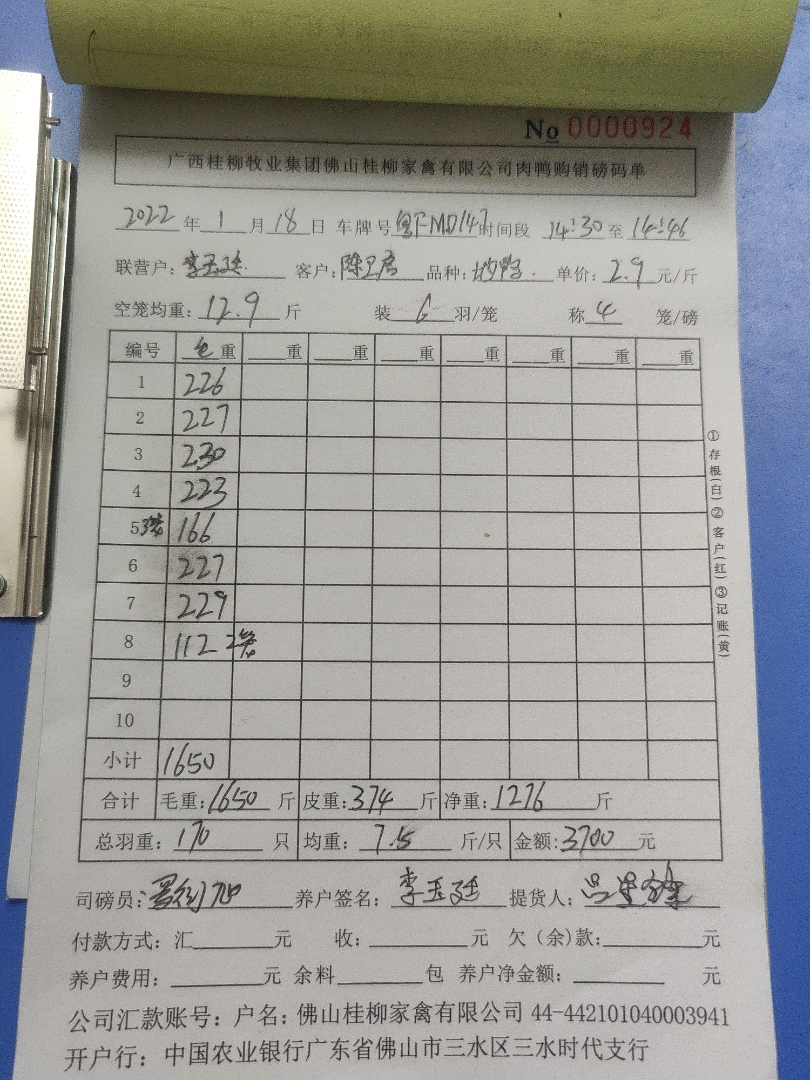 No 0000924
广西桂柳牧业集团佛山桂柳家禽有限公司肉鸭购销磅码单
2022 年 1 月 18 日 车牌号 MD147 时间段 14:30 至 14:46
联营户: 李玉廷 客户: 陈 品种: 单价: 2.9 元/斤
空笼均重: 12.9 斤 装 6 羽/笼 称 4 笼/磅
编号 毛重 重 重 重 重 重 重 重
1 226
2 227
3 230
4 223
5 3笼 166
6 227
7 229
8 112 2笼
9
10
小计 1650
合计 毛重: 1650 斤 皮重: 374 斤 净重: 1276 斤
总羽重: 170 只 均重: 7.5 斤/只 金额: 3700 元
司磅员: 养户签名: 李玉廷 提货人:
付款方式: 汇 元 收: 元 欠(余)款: 元
养户费用: 元 余料 包 养户净金额: 元
公司汇款账号: 户名: 佛山桂柳家禽有限公司 44-442101040003941
开户行: 中国农业银行广东省佛山市三水区三水时代支行
①存根(白)②客户(红)③记账(黄)